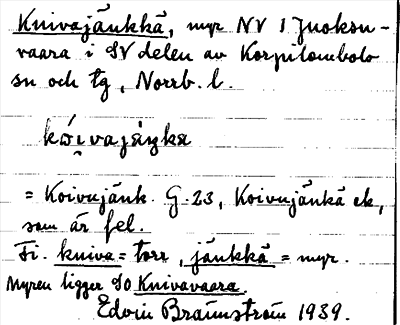 Knivajänkkä, myr NV i Juoksu-
vaara i SV delen av Korpilombolo
sn och tg, Norrb. l.
= Koivujänk. G. 23, Koivujänkä ek,
som är fel.
Fi. kuiva = torr, jänkkä = myr.
Myren ligger SO Knivavaara.
Edvin Brännström 1939.